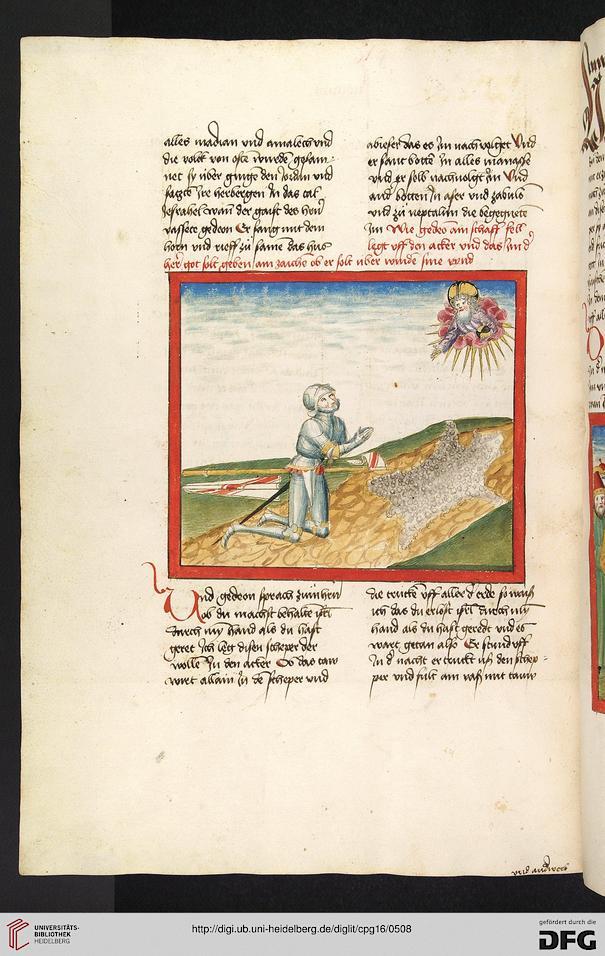 alles madian und amalech und
die volck von oste wurde gesam-
net sy uber ginge den jordan und
satzte ire herbergen in das tal
jesrahel wan der gaist des hern
vassete gedeon Er sang mit dem
horn und rieff zu same das hus
abieser das es im nach volget Und
er sant botte in alles manasse
und er selb nachvolgt im Und
and botten in aser und zabulo
und zu neptalim die begegnete
im Wie gedeo ain schaff fell
legt uff den acker und das im d
her got solt geben ain zaiche ob er solt uber winde sine vind
Und gedeon sprach zum hern
ob du machst behalte isrl
durch my hand als du hast
geret Ich leg disen scheper der
wolle in den acker So das taw
wirt allain in de scheper und
die truckē uff aller d erde so waiß
ich das du erlost isrl durch my
hand als du hast geredt und es
wart getan also Er stund uff
In d nacht er truckt uß den schep-
per und fult ain vaß mit tauw
und anders
UNIVERSITÄTS-
BIBLIOTHEK
HEIDELBERG
http://digi.ub.uni-heidelberg.de/diglit/cpg16/0508
gefördert durch die
DFG